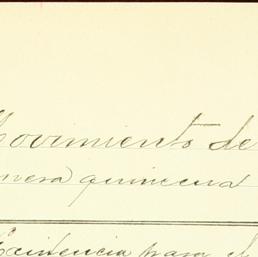 Movimiento de
mera quincena
Existencia para el